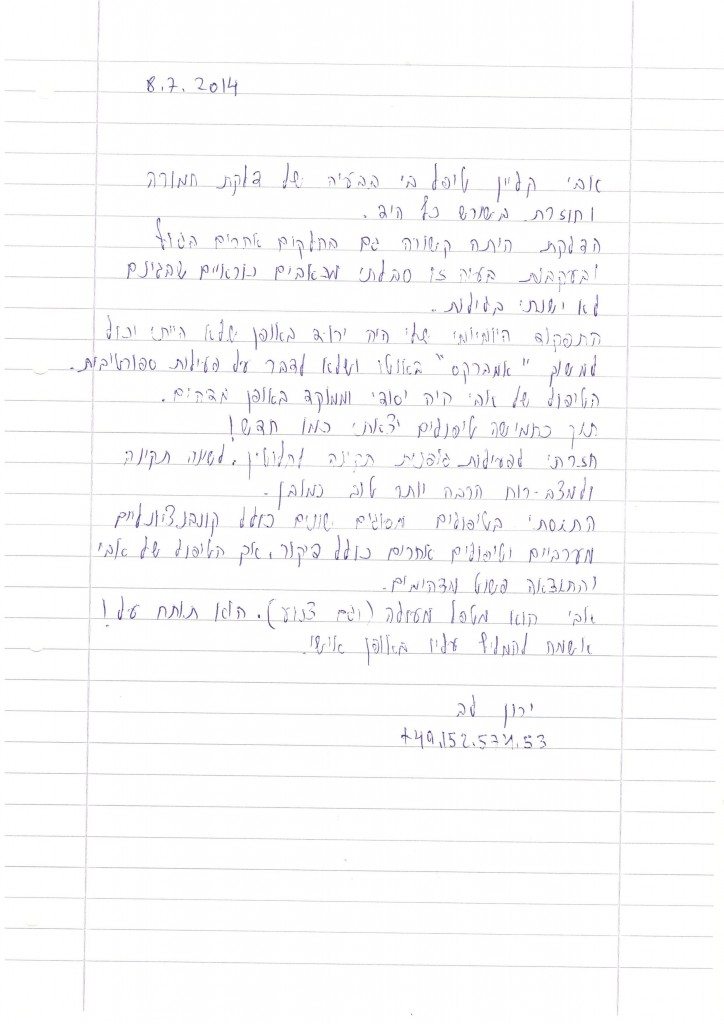 8.7.2014
אבי קליין טיפל בי בבעיה של דלקת חמורה
וחוזרת בשורש כף היד.
הדלקת היתה קשורה גם בחלקים אחרים בגוף
ובעקבות בעיה זו סבלתי מכאבים נוראיים שבגינם
לא ישנתי בלילות..
התפקוד היומיומי שלי היה ירוד באופן שלא הייתי יכול
למשוך "אמברקס" באוטו ושלא לדבר על פעילות ספורטיבית.
הטיפול של אבי היה יסודי וממוקד באופן מדהים.
תוך כחמישה טיפולים יצאתי כמו חדש!
חזרתי לפעילות גופנית תקינה לחלוטין, לשינה תקינה
ולמצב-רוח הרבה יותר טוב כמובן.
התנסתי בטיפולים מסוגים שונים כולל קונבנציונליים
מערביים וטיפולים אחרים כולל דיקור, אך הטיפול של אבי
והתוצאה פשוט מדהימים.
אבי הוא מטפל מעולה (וגם צנוע). הוא תותח על!
אשמח להמליץ עליו באופן אישי.
ירון לב
+49.152.574.53